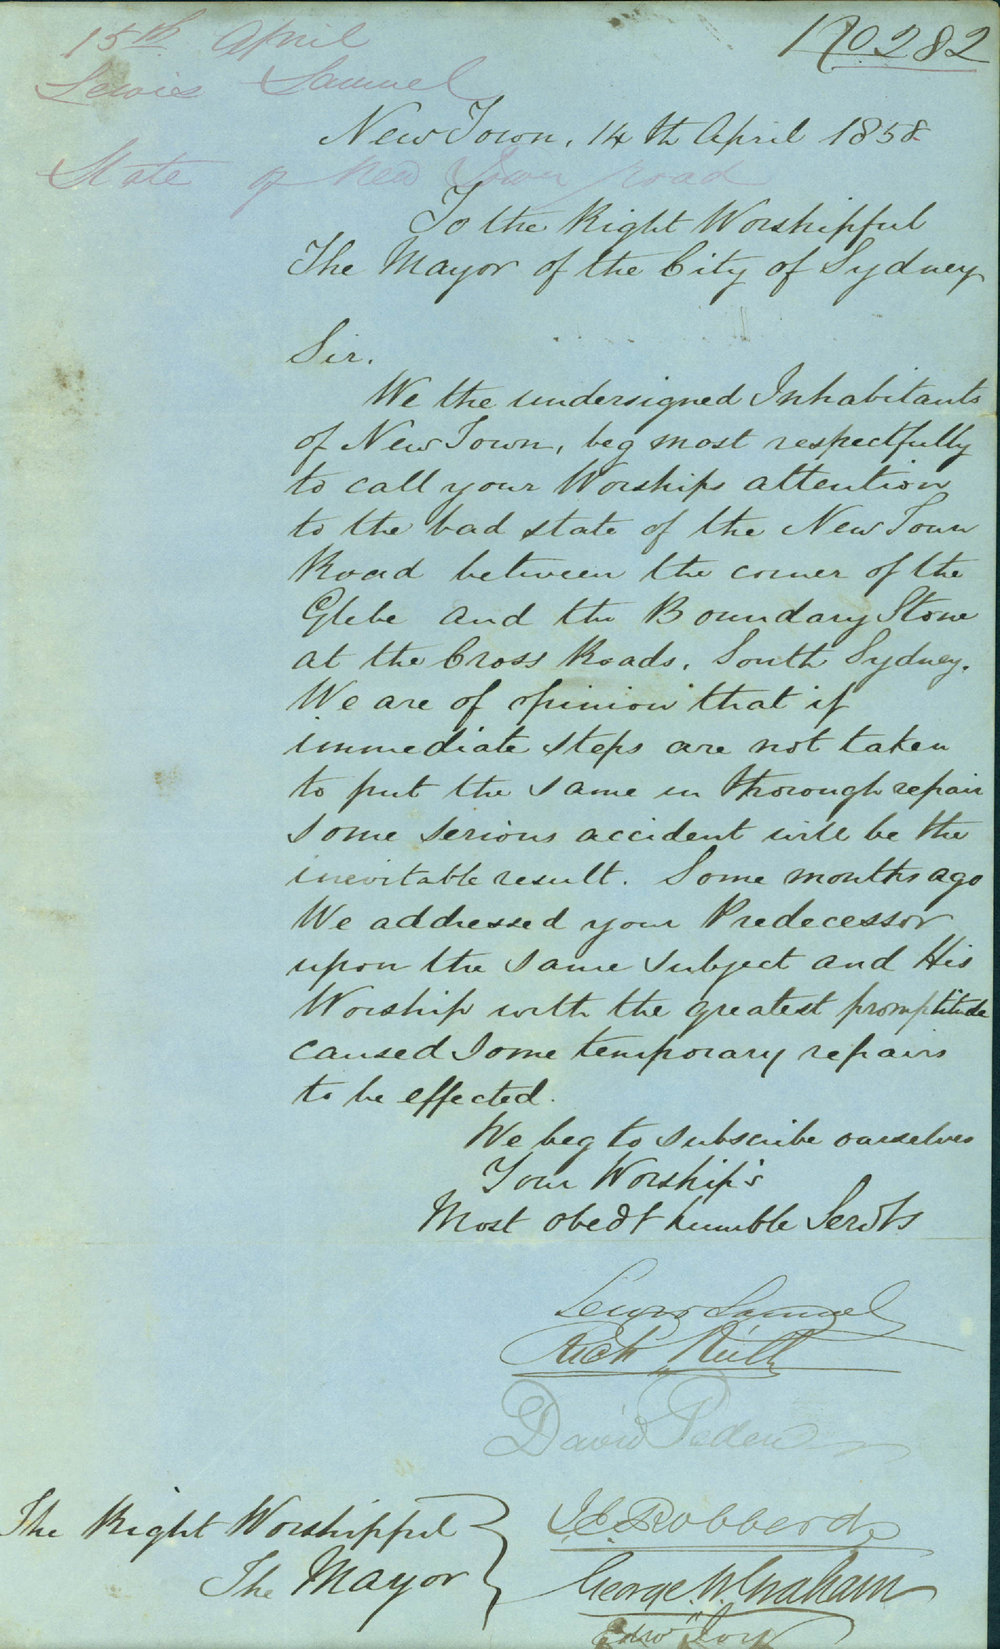 No 282
15th April
Lewis Samuel
State of New Town road
New Town, 14th April 1858
To the Right Worshipful
The Mayor of the City of Sydney
Sir.
We the undersigned Inhabitants
of New Town, beg most respectfully
to call your Worships attention
to the bad state of the New Town
Road between the corner of the
Glebe and the Boundary Stone
at the Cross Roads, South Sydney.
We are of opinion that if
immediate steps are not taken
to put the same in thorough repair
some serious accident will be the
inevitable result. Some months ago
We addressed your Predecessor
upon the same subject and His
Worship with the greatest promptitude
caused some temporary repairs
to be effected.
We beg to subscribe ourselves
Your Worship's
Most obedt humble Servts
Lewis Samuel
Rich
David Peden
George. W. Graham
Edwd
The Right Worshipful
The Mayor